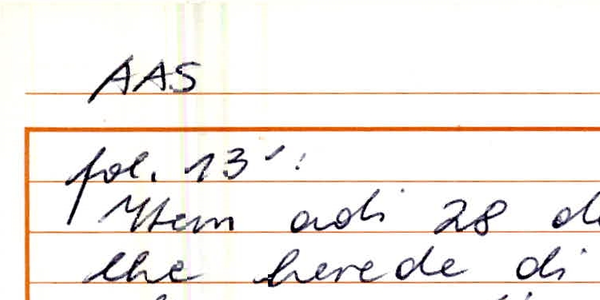 AAS
fol. 13':
Item adi 28 d
che herede di